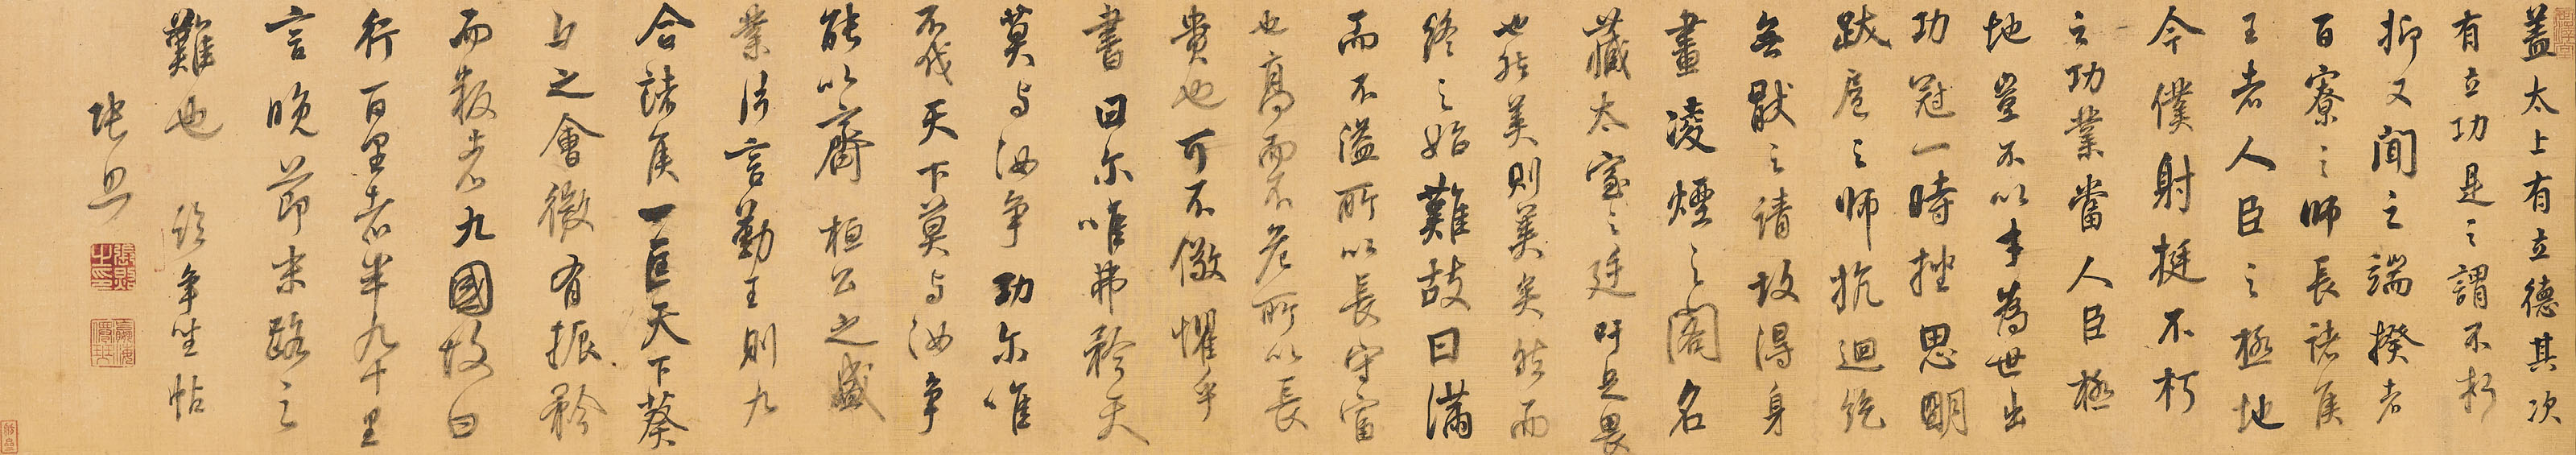 蓋太上有立德其次
有立功是之謂不朽
抑又聞之端揆者
百寮之師長諸侯
王者人臣之極地
今僕射挺不朽
之功業當人臣極
地豈不以才為世出
功冠一時挫思明
跋扈之師抗迴紇
無厭之請故得身
畫凌煙之閣名
藏太室之廷吁足畏
也然美則美矣然而
終之始難故曰滿
而不溢所以長守富
也高而不危所以長
貴也可不儆懼乎
書曰尔唯弗矜天
莫与汝争功尔唯
不伐天下莫与汝争
能以齊桓公之盛
業片言勤王則九
合諸侯一匡天下葵
丘之會微有振矜
而叛者九國故曰
行百里者半九十里
言晚節末路之
難也 臨争坐帖
張照
張照之印
瀛海僊琴